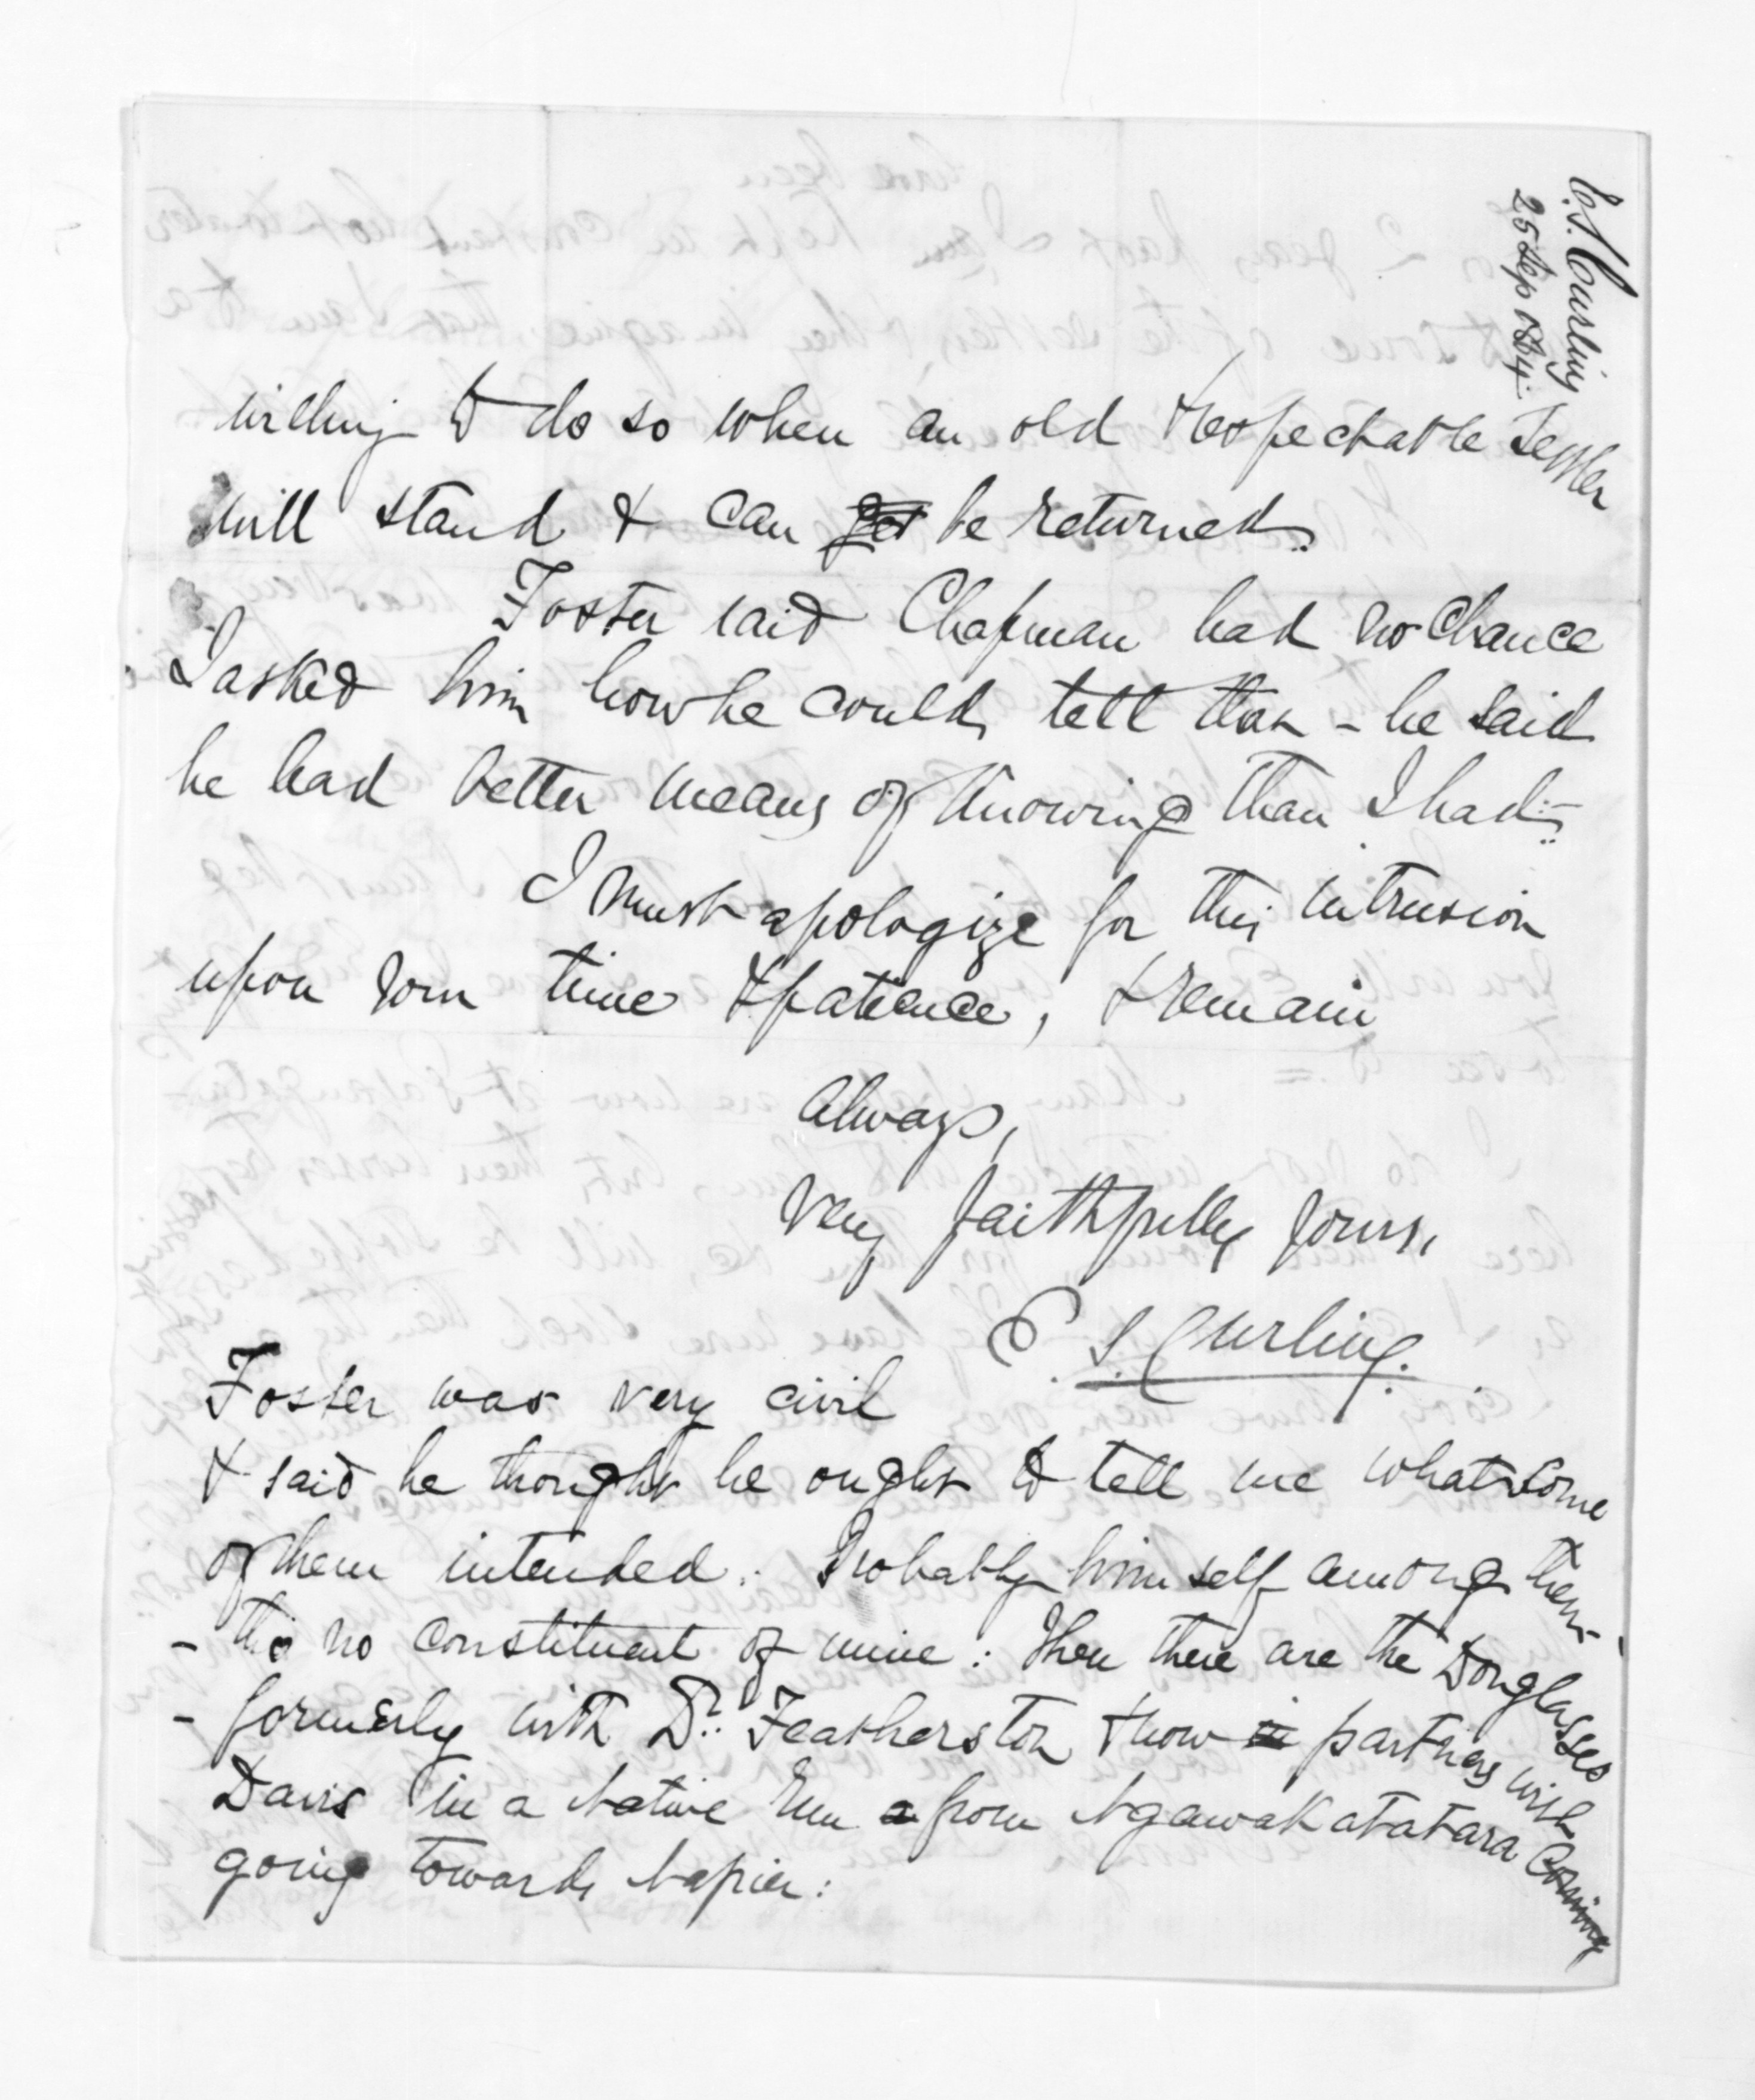 E.S. Curling
25 Sep 1864.
willing to do so when an old & respectable Settler
will stand & can get be returned.
Foster said Chapman had no chance
I asked him how he could tell that - he said
he had better means of knowing than I had:-
I must apologize for this intrusion
upon your time & patience, & remain
Always,
Very faithfully yours,
E. S. Curling.
Foster was very civil
& said he thought he ought to tell me what some
of them intended. Probably himself among them-
- tho no constituent of mine: Then there are the Douglasses
- formerly with Dr. Featherston & now in partners with
Davis in a Native run a from Ngawakatatara Coming
going towards Napier: